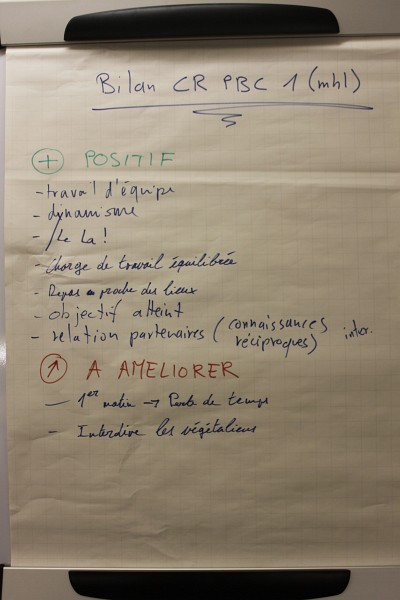 Bilan CR PBC 1 (mhl)
+ POSITIF
- travail d'équipe
- dynamisme
- Le La !
- Charge de travail équilibrée
- Repas proche des lieux
- objectif atteint
- relation partenaires (connaissances
réciproques) inter.
↗ A AMELIORER
- 1er matin → Perte de temps
- Interdire les végétaliens